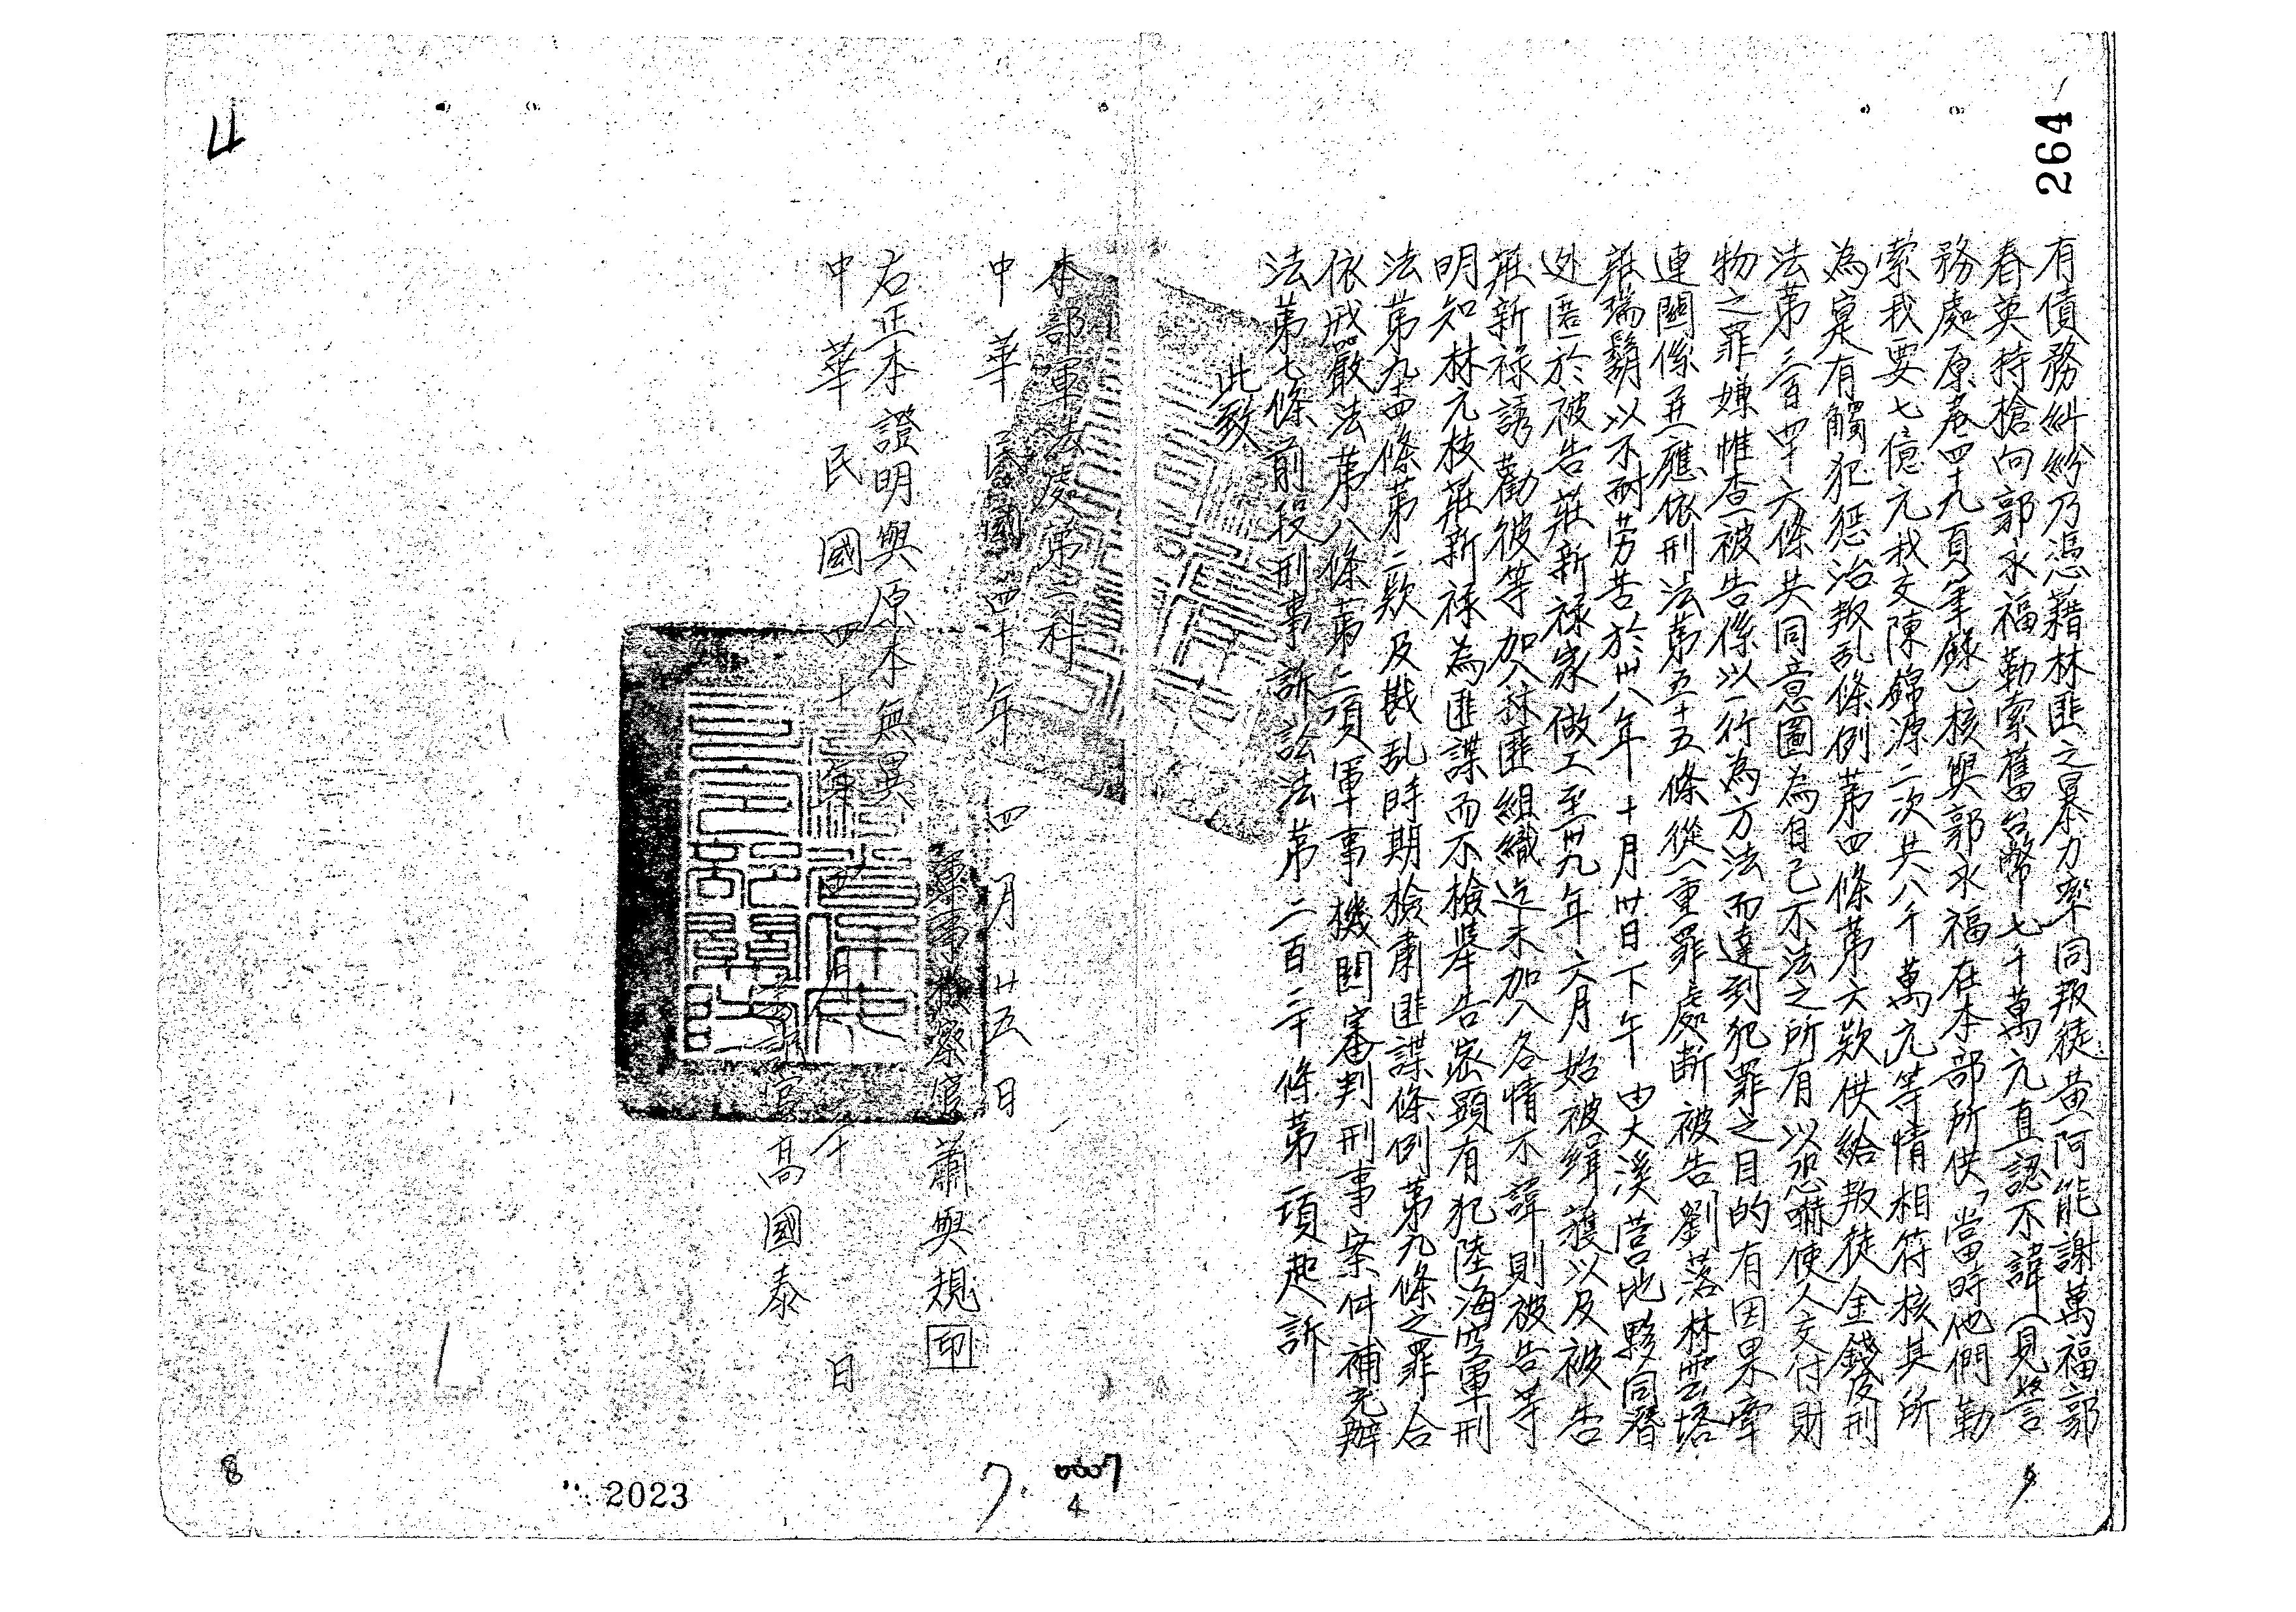 264
有債務糾紛乃憑藉林匪之暴力率同叛徒黃阿能謝萬福郭
春英持槍向郭永福勒索舊台幣七千萬元直認不諱(見警
務處原卷四十九頁筆錄)核與郭永福在本部所供「當時他們勒
索我要七億元我交陳錦源二次共八千萬元等情相符核其所
為寔有觸犯惩治叛乱條例第四條第六欵供給叛徒金錢及刑
法第三百四十六條共同意圖為自己不法之所有以恐嚇使人交付財
物之罪嫌惟查被告係以一行為方法而達到犯罪之目的有因果牽
連關係並應依刑法第五十五條從一重罪處断被告劉落林雲塔
莊瑞鬍以不耐劳苦於卅八年十月卅日下午由大溪营地夥同潛
逃匿於被告莊新祿家做工至卅九年六月始被緝獲以及被告
莊新祿誘勸彼等加入林匪組織迄未加入各情不諱則被告等
明知林元枝莊新祿為匪諜而不檢舉告密顯有犯陸海空軍刑
法第九十四條第二欵及戡乱時期檢肅匪諜條例第九條之罪合
依戒嚴法第八條第二項軍事機関審判刑事案件補充辦
法第七條前段刑事訴訟法第二百三十條第一項起訴
此致
本部軍法處第三科
中華民國四十年四月廿五日
軍事檢察官蕭與規印
右正本證明與原本無異
中華民國四十年四月 日
書記官高國泰
8
2023
7.
0007
4